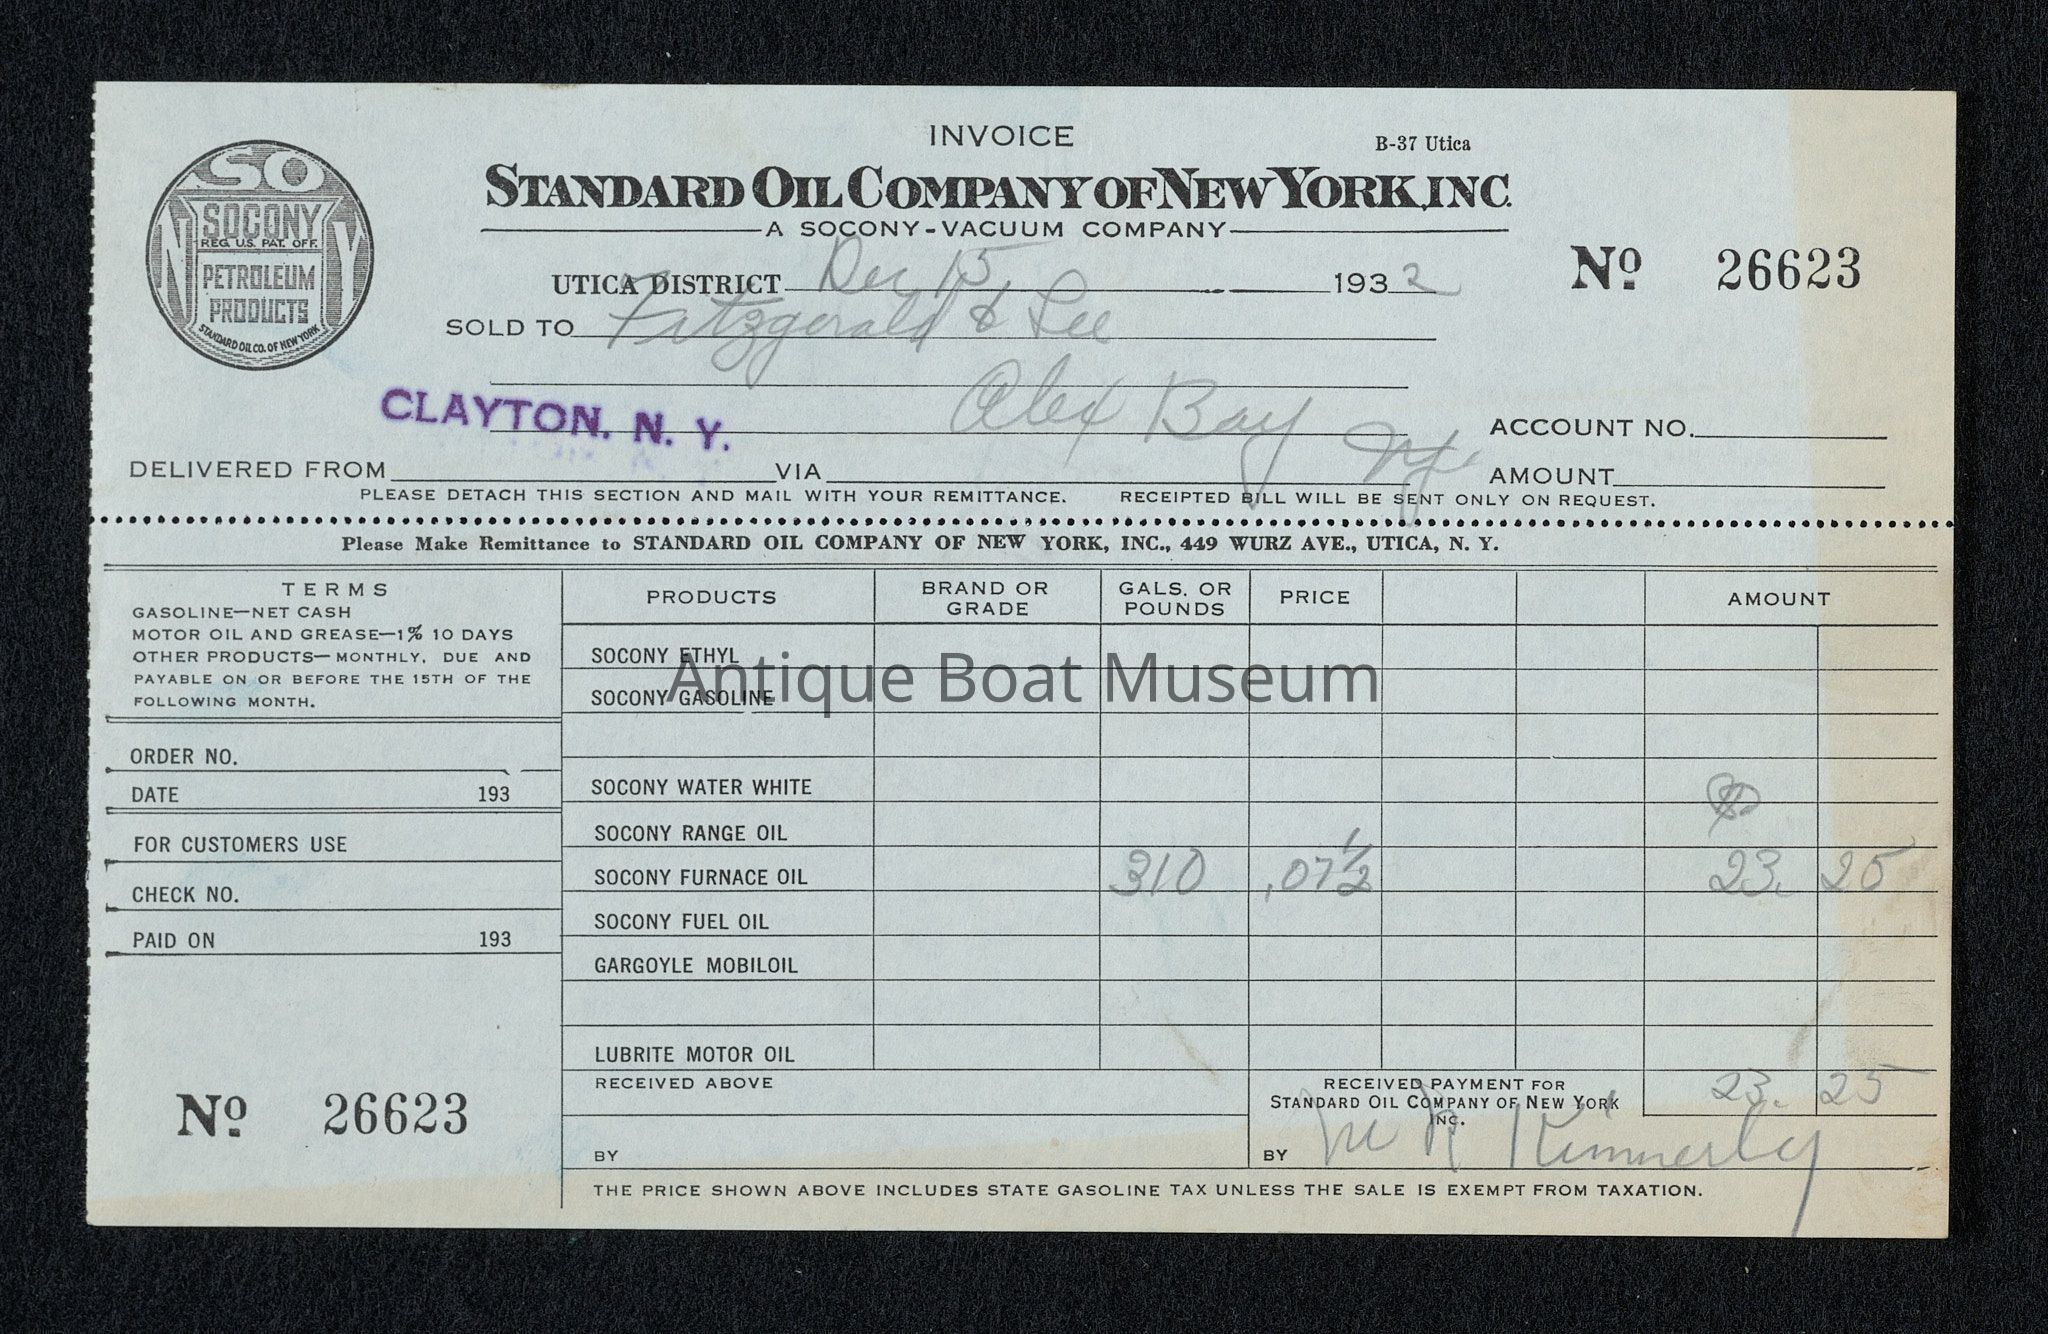 INVOICE
B-37 Utica
STANDARD OIL COMPANY OF NEW YORK, INC.
A SOCONY-VACUUM COMPANY
SO
N Y
SOCONY
REG. U.S. PAT. OFF.
PETROLEUM
PRODUCTS
STANDARD OIL CO. OF NEW YORK
UTICA DISTRICT Dec 15 1932
No 26623
SOLD TO Fitzgerald & Lee
Alex Bay NY.
CLAYTON, N. Y.
ACCOUNT NO.
DELIVERED FROM VIA AMOUNT
PLEASE DETACH THIS SECTION AND MAIL WITH YOUR REMITTANCE. RECEIPTED BILL WILL BE SENT ONLY ON REQUEST.
Please Make Remittance to STANDARD OIL COMPANY OF NEW YORK, INC., 449 WURZ AVE., UTICA, N. Y.
TERMS
GASOLINE—NET CASH
MOTOR OIL AND GREASE—1% 10 DAYS
OTHER PRODUCTS—MONTHLY, DUE AND
PAYABLE ON OR BEFORE THE 15TH OF THE
FOLLOWING MONTH.
ORDER NO.
DATE 193
FOR CUSTOMERS USE
CHECK NO.
PAID ON 193
No 26623
PRODUCTS BRAND OR GRADE GALS. OR POUNDS PRICE AMOUNT
SOCONY ETHYL
Antique Boat Museum
SOCONY GASOLINE
SOCONY WATER WHITE
SOCONY RANGE OIL
SOCONY FURNACE OIL 310 .07½ 23. 25
SOCONY FUEL OIL
GARGOYLE MOBILOIL
LUBRITE MOTOR OIL
RECEIVED ABOVE
BY
RECEIVED PAYMENT FOR
STANDARD OIL COMPANY OF NEW YORK
INC.
23. 25
BY Kimmerly
THE PRICE SHOWN ABOVE INCLUDES STATE GASOLINE TAX UNLESS THE SALE IS EXEMPT FROM TAXATION.